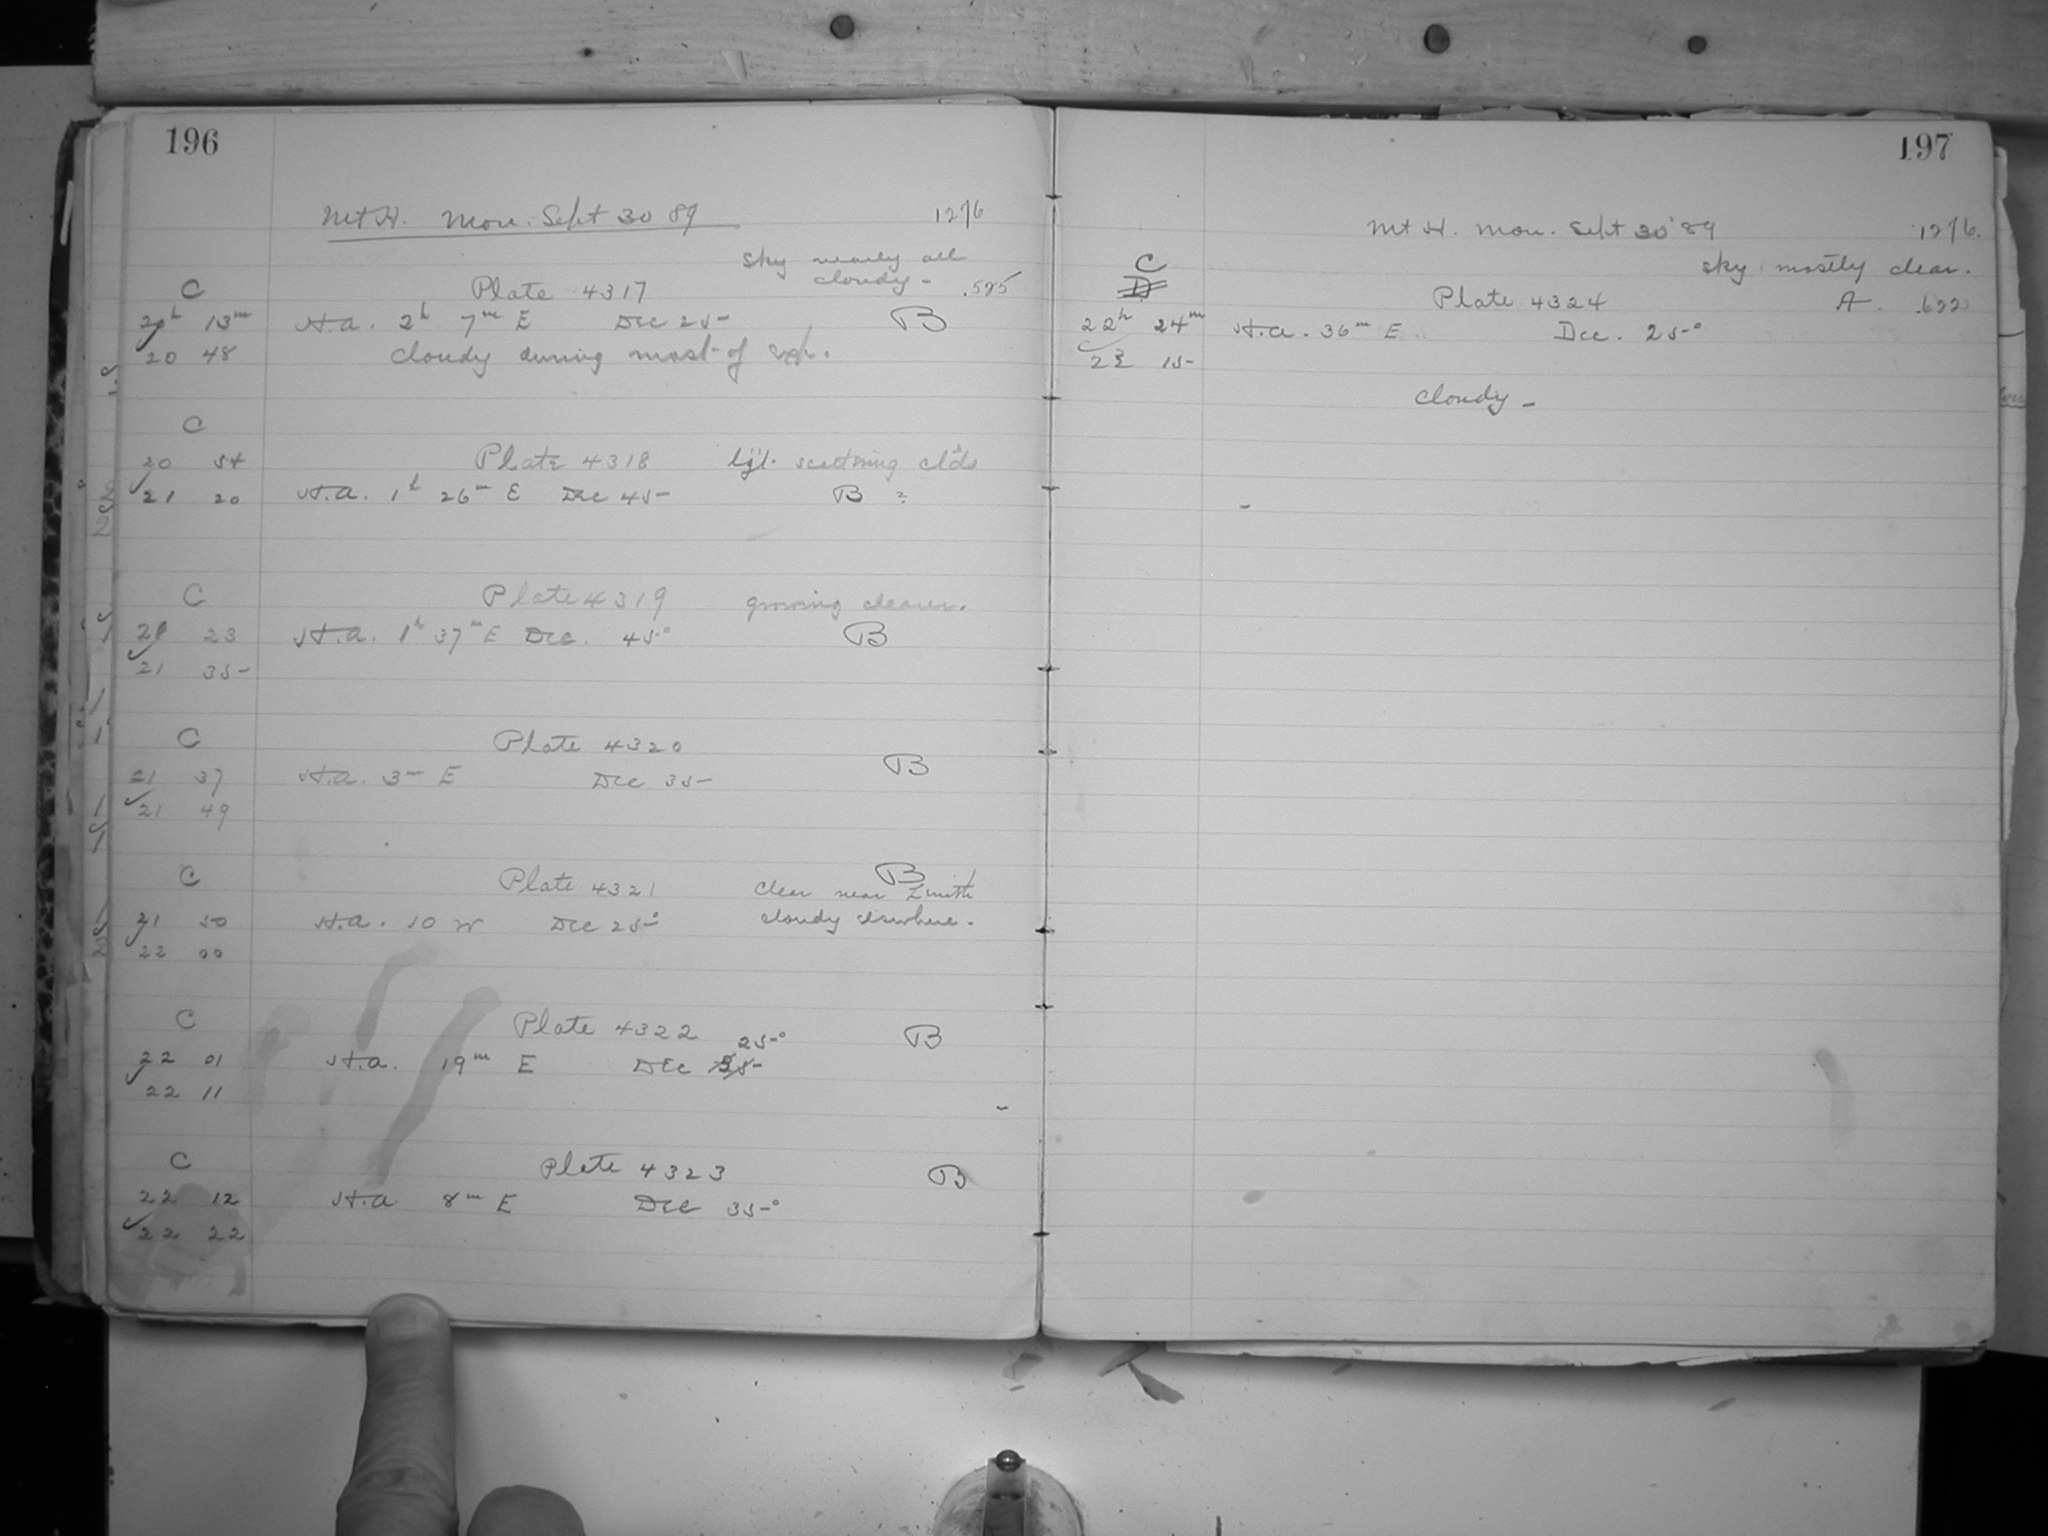 196
Mt H. Mon. Sept 30 89 1276
sky nearly all
cloudy - .585
C Plate 4317
20h 13m H.a. 2h 7m E Dec 25- B
20 48 cloudy during most of exp.
C
20 54 Plate 4318 scattering clds
21 20 H.a. 1h 26m E Dec 45- B ?
C Plate 4319 growing clearer.
21 23 H.a. 1h 37m E Dec. 45° B
21 35-
C Plate 4320
21 37 H.a. 3m E Dec 35- B
21 49
C Plate 4321 B
clear near Zenith
21 50 H.a. 10 W Dec 25° cloudy elsewhere.
22 00
C Plate 4322 25° B
22 01 H.a. 19m E Dec 35-
22 11
C Plate 4323 B
22 12 H.a 8m E Dec 35°
22 22
197
Mt H. Mon. Sept 30 '89 1276.
C sky mostly clear.
D Plate 4324 A. .622
22h 24m H.a. 36m E. Dec. 25°
22 15-
cloudy -